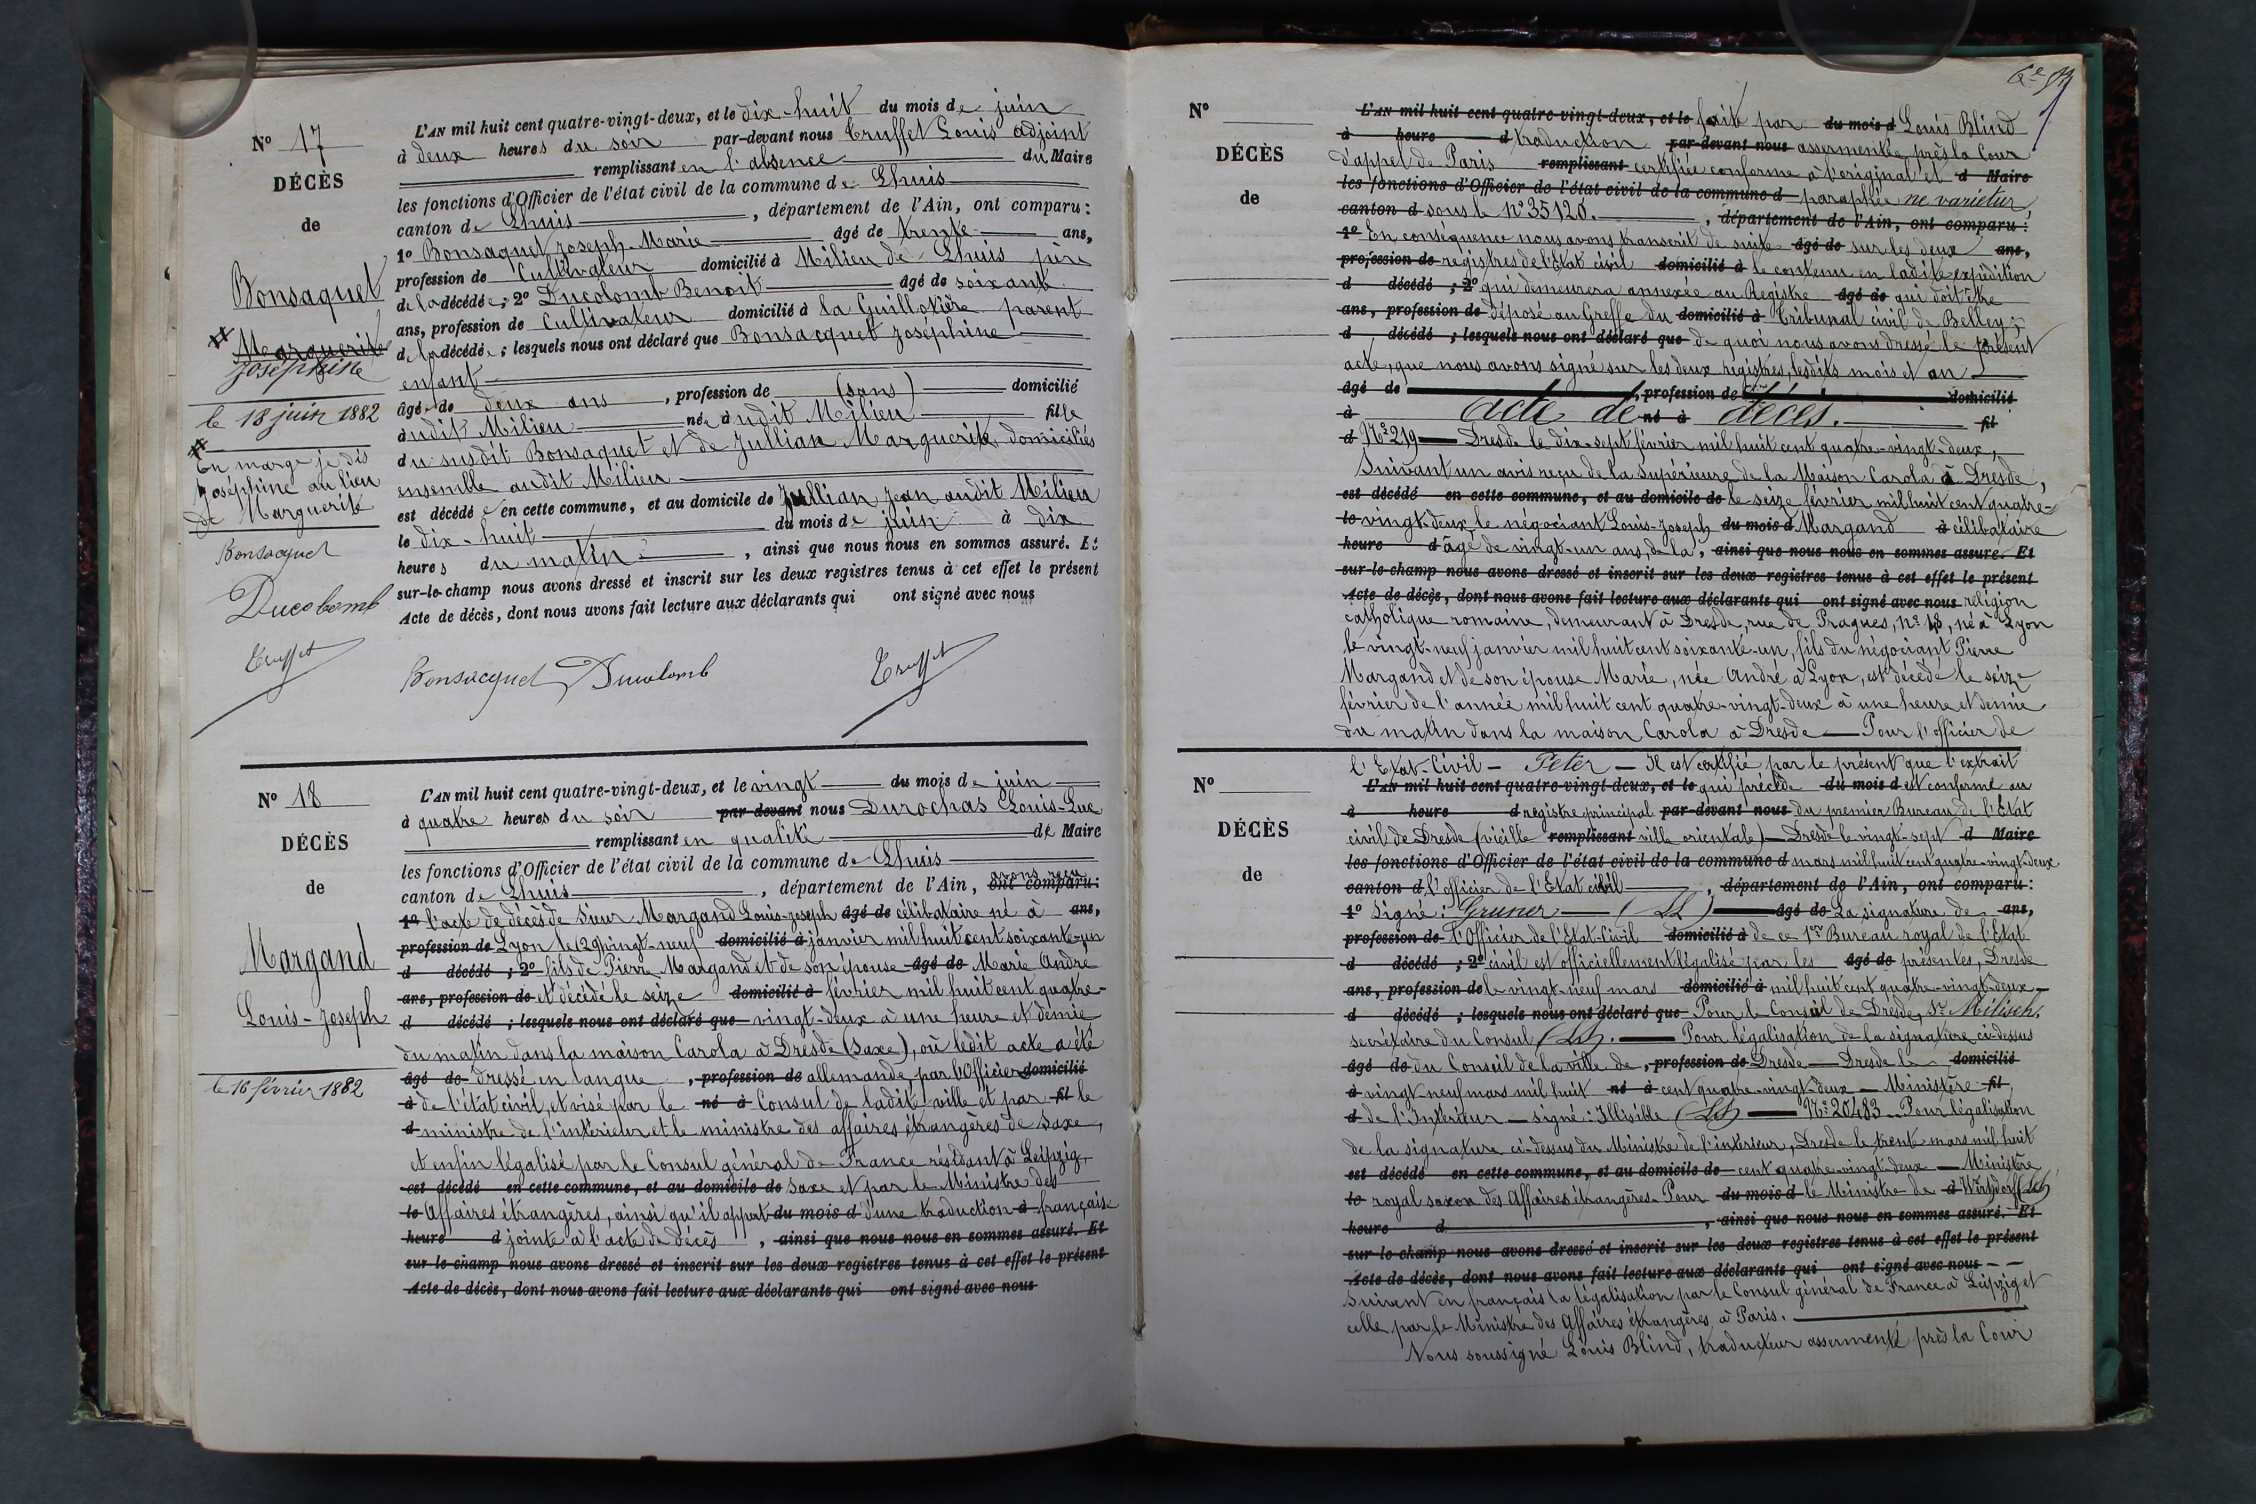 N° 17
DÉCÈS
de
Bonsaquet
Marguerite
Joséphine
le 18 juin 1882
En marge je dis
Joséphine au lieu
de Marguerite
Bonsacquet
Ducolomb
Truffet
L'AN mil huit cent quatre-vingt-deux, et le dix-huit du mois de juin
à deux heures du soir par-devant nous Truffet Louis adjoint
remplissant en l'absence du Maire
les fonctions d'Officier de l'état civil de la commune de Lhuis
canton de Lhuis, département de l'Ain, ont comparu:
1° Bonsaquet Joseph-Marie âgé de trente ans,
profession de Cultivateur domicilié à Milieu de Lhuis père
de la décédée; 2° Ducolomb Benoit âgé de soixante
ans, profession de Cultivateur domicilié à la Guillotière parent
de la décédée; lesquels nous ont déclaré que Bonsacquet Joséphine
enfant
âgée de deux ans, profession de (sans) domicilié
audit Milieu née audit Milieu fille
du susdit Bonsaquet et de Jullian Marguerite domiciliés
ensemble audit Milieu
est décédée en cette commune, et au domicile de Jullian Jean audit Milieu
le dix-huit du mois de juin à dix
heures du matin, ainsi que nous nous en sommes assuré. Et
sur-le-champ nous avons dressé et inscrit sur les deux registres tenus à cet effet le présent
Acte de décès, dont nous avons fait lecture aux déclarants qui ont signé avec nous
Bonsacquet Ducolomb Truffet
N° 18
DÉCÈS
de
Margand
Louis-Joseph
le 16 février 1882
L'AN mil huit cent quatre-vingt-deux, et le vingt du mois de juin
à quatre heures du soir par-devant nous Durochas Louis-Luc
remplissant en qualité de Maire
les fonctions d'Officier de l'état civil de la commune de Lhuis
avons reçu
canton de Lhuis, département de l'Ain, ont comparu:
1° l'acte de décès de Sieur Margand Louis-Joseph âgé de célibataire né à ans,
profession de Lyon le (29) vingt-neuf domicilié à janvier mil huit cent soixante-un
d décédé; 2° fils de Pierre Margand et de son épouse âgé de Marie André
ans, profession de et décédé le seize domicilié à février mil huit cent quatre-
d décédé; lesquels nous ont déclaré que vingt-deux à une heure et demie
du matin dans la maison Carola à Dresde (Saxe), où ledit acte a été
âgé de dressé en langue, profession de allemande, par l'Officier domicilié
à de l'état civil, et visé par le né à Consul de ladite ville et par fil le
d ministre de l'intérieur et le ministre des affaires étrangères de Saxe,
et enfin légalisé par le Consul général de France résidant à Leipzig,
est décédé en cette commune, et au domicile de Saxe et par le Ministre des
le Affaires étrangères, ainsi qu'il appert du mois d d'une traduction à française
heure d jointe à l'acte de décès, ainsi que nous nous en sommes assuré. Et
sur-le-champ nous avons dressé et inscrit sur les deux registres tenus à cet effet le présent
Acte de décès, dont nous avons fait lecture aux déclarants qui ont signé avec nous
N°
DÉCÈS
de
L'AN mil huit cent quatre-vingt-deux, et le fait par du mois d Louis Blind
à heure d traduction par-devant nous assermentée près la Cour
d'appel de Paris remplissant certifiée conforme à l'original et d Maire
les fonctions d'Officier de l'état civil de la commune d paraphée ne varietur
canton d sous le N° 35120., département de l'Ain, ont comparu:
1° En conséquence nous avons transcrit de suite âgé de sur les deux ans,
profession de registres de l'Etat civil domicilié à le contenu en ladite expédition
d décédé; 2° qui demeurera annexée au Registre âgé de qui doit être
ans, profession de déposé au Greffe du domicilié à Tribunal civil de Belley;
d décédé; lesquels nous ont déclaré que de quoi nous avons dressé le présent
acte, que nous avons signé sur les deux registres, lesdits mois et an
âgé de, profession de domicilié
à Acte de né à décès. fil
d N° 219 — Dresde le dix-sept février mil huit cent quatre-vingt-deux,
Suivant un avis reçu de la Supérieure de la Maison Carola à Dresde,
est décédé en cette commune, et au domicile de le seize février mil huit cent quatre-
le vingt-deux le négociant Louis-Joseph du mois d Margand à célibataire
heure d âgé de vingt-un ans, de la, ainsi que nous nous en sommes assuré. Et
sur-le-champ nous avons dressé et inscrit sur les deux registres tenus à cet effet le présent
Acte de décès, dont nous avons fait lecture aux déclarants qui ont signé avec nous religion
catholique romaine, demeurant à Dresde, rue de Pragues, n° 48, né à Lyon
le vingt-neuf janvier mil huit cent soixante-un, fils du négociant Pierre
Margand et de son épouse Marie, née André à Lyon, est décédé le seize
février de l'année mil huit cent quatre-vingt-deux à une heure et demie
du matin dans la maison Carola à Dresde — Pour l'officier de
N°
DÉCÈS
de
l'Etat-Civil — Peter — Il est certifié par le présent que l'extrait
L'AN mil huit cent quatre-vingt-deux, et le qui précède du mois d est conforme au
à heure d registre principal par-devant nous du premier Bureau de l'Etat
civil de Dresde (vieille remplissant ville orientale) — Dresde le vingt-sept d Maire
les fonctions d'Officier de l'état civil de la commune d mars mil huit cent quatre-vingt-deux
canton d l'officier de l'Etat civil, département de l'Ain, ont comparu:
1° Signé: Gruner — (LS) — âgé de La signature de ans,
profession de l'Officier de l'Etat-Civil domicilié à de ce 1er Bureau royal de l'Etat
d décédé; 2° civil est officiellement légalisé par les âgé de présentes, Dresde
ans, profession de le vingt-neuf mars domicilié à mil huit cent quatre-vingt-deux —
d décédé; lesquels nous ont déclaré que Pour le Conseil de Dresde, Sr Milisch.
secrétaire du Consul (LS). — Pour légalisation de la signature ci-dessus
âgé de du Conseil de la ville de, profession de Dresde — Dresde le domicilié
à vingt-neuf mars mil huit né à cent quatre-vingt-deux — Ministère fil
d de l'Intérieur — signé: (LS) — N° 20483 — Pour légalisation
de la signature ci-dessus du Ministre de l'intérieur, Dresde le trente mars mil huit
est décédé en cette commune, et au domicile de cent quatre-vingt-deux — Ministère
le royal saxon des Affaires étrangères. Pour du mois d le Ministre de à (LS)
heure d, ainsi que nous nous en sommes assuré. Et
sur-le-champ nous avons dressé et inscrit sur les deux registres tenus à cet effet le présent
Acte de décès, dont nous avons fait lecture aux déclarants qui ont signé avec nous
Suivent en français la légalisation par le Consul général de France à Leipzig et
celle par le Ministre des Affaires étrangères à Paris.
Nous soussigné Louis Blind, traducteur assermenté près la Cour